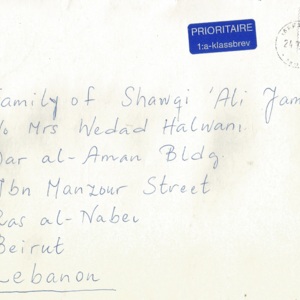 PRIORITAIRE
1:a-klassbrev
Family of Shawqi 'Ali Jam
c/o Mrs Wedad Halwani
Dar al-Aman Bldg.
Ibn Manzour Street
Ras al-Nabei
Beirut
Lebanon